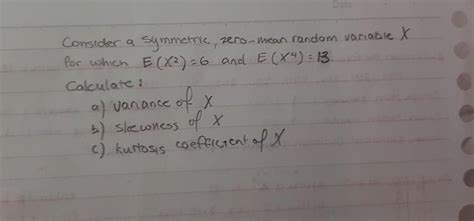 Consider a symmetric, zero-mean random variable X
for which E(X²)=6 and E(X⁴)=13
Calculate:
a) variance of X
b) skewness of X
c) kurtosis coefficient of X